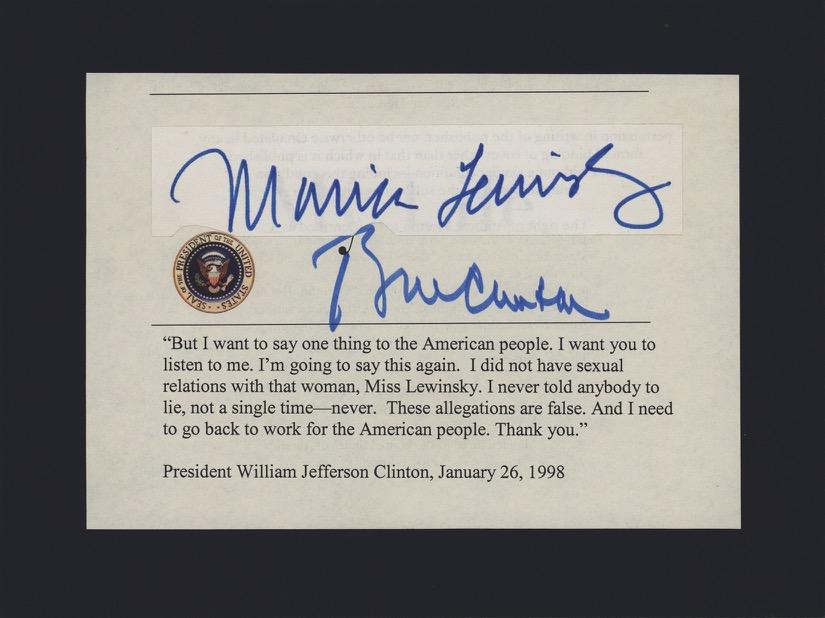 Monica Lewinsky
SEAL OF THE PRESIDENT OF THE UNITED STATES
Bill Clinton
“But I want to say one thing to the American people. I want you to
listen to me. I’m going to say this again.  I did not have sexual
relations with that woman, Miss Lewinsky. I never told anybody to
lie, not a single time—never.  These allegations are false. And I need
to go back to work for the American people. Thank you.”
President William Jefferson Clinton, January 26, 1998